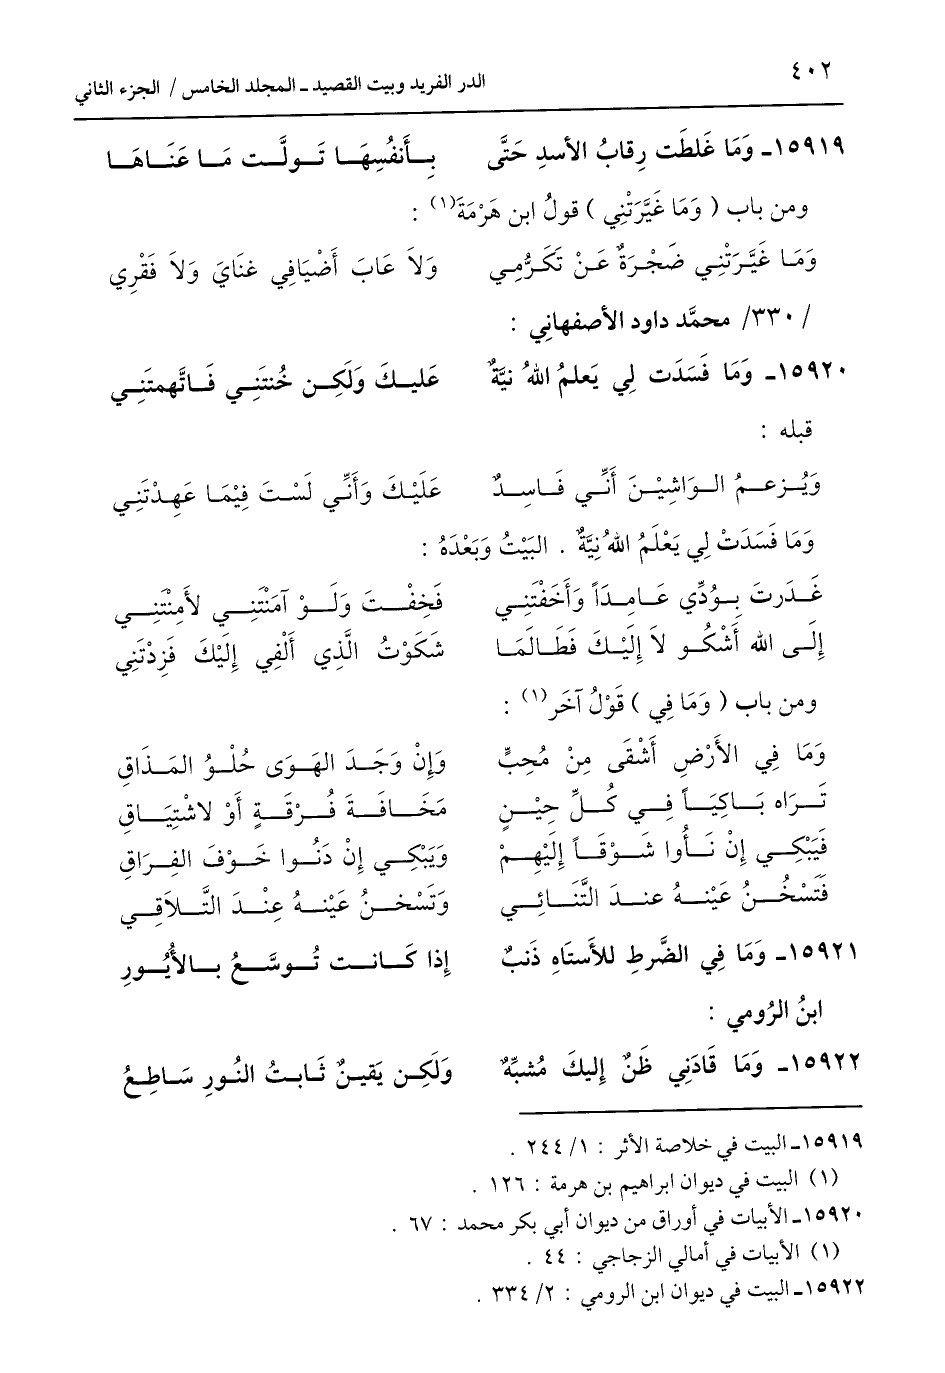 ٤٠٢
الدر الفريد وبيت القصيد ـ المجلد الخامس / الجزء الثاني
١٥٩١٩ـ وَمَا غَلطَت رِقابُ الأسدِ حَتَّى بِأَنفُسِهَا تَولَّت مَا عَنَاهَا
ومن باب ( وَمَا غَيَّرَتْنِي ) قولُ ابن هَرْمَةَ(١) :
وَمَا غَيَّرَتْنِي ضَجْرَةٌ عَنْ تَكَرُّمِي وَلاَ عَابَ أَضْيَافِي غنَايَ وَلاَ فَقْرِي
/ ٣٣٠/ محمَّد داود الأصفهانِي :
١٥٩٢٠ـ وَمَا فَسَدَت لِي يَعلمُ اللهُ نيَّةٌ عَليكَ وَلَكِن خُنتَنِي فَاتَّهمتَنِي
قبله :
وَيُزعمُ الواشِيْنَ أَنِّي فَاسِدٌ عَلَيْكَ وَأَنِّي لَسْتَ فِيْمَا عَهِدْتَنِي
وَمَا فَسَدَتْ لِي يَعْلَمُ اللهُ نِيَّةٌ . البَيْتُ وَبَعْدَهُ :
غَدَرتَ بِوُدِّي عَامِدَاً وَأَخَفْتَنِي فَخِفْتَ وَلَوْ آمَنْتَنِي لأَمِنْتَنِي
إِلَى الله أَشْكُو لاَ إِلَيْكَ فَطَالَمَا شَكَوْتُ الَّذِي أَلْفِي إِلَيْكَ فَزِدْتَنِي
ومن باب ( وَمَا فِي ) قَوْلُ آخَر(١) :
وَمَا فِي الأَرْضِ أَشْقَى مِنْ مُحِبٍّ وَإِنْ وَجَدَ الهَوَى حُلْوُ المَذَاقِ
تَرَاه بَاكِيَاً فِي كُلِّ حِيْنٍ مَخَافَةَ فُرْقَةٍ أَوْ لاشْتِيَاقِ
فَيَبْكِي إِنْ نَأُوا شَوْقَاً إِلَيْهِمْ وَيَبْكِي إِنْ دَنُوا خَوْفَ الفِرَاقِ
فَتَسْخُنُ عَيْنهُ عندَ التَّنَائِي وَتَسْخنُ عَيْنهُ عِنْدَ التَّلاَقِي
١٥٩٢١ـ وَمَا فِي الضَّرطِ للأَستَاهِ ذَنبٌ إِذا كَانت تُوسَّعُ بالأُيُورِ
ابنُ الرُومي :
١٥٩٢٢ـ وَمَا قَادَنِي ظَنٌ إِليكَ مُشبِّهٌ وَلَكِن يَقينٌ ثَابتُ النُورِ سَاطِعُ
١٥٩١٩ـ البيت في خلاصة الأثر : ١/ ٢٤٤ .
(١) البيت في ديوان ابراهيم بن هرمة : ١٢٦ .
١٥٩٢٠ـ الأبيات في أوراق من ديوان أبي بكر محمد : ٦٧ .
(١) الأبيات في أمالي الزجاجي : ٤٤ .
١٥٩٢٢ـ البيت في ديوان ابن الرومي : ٢/ ٣٣٤ .